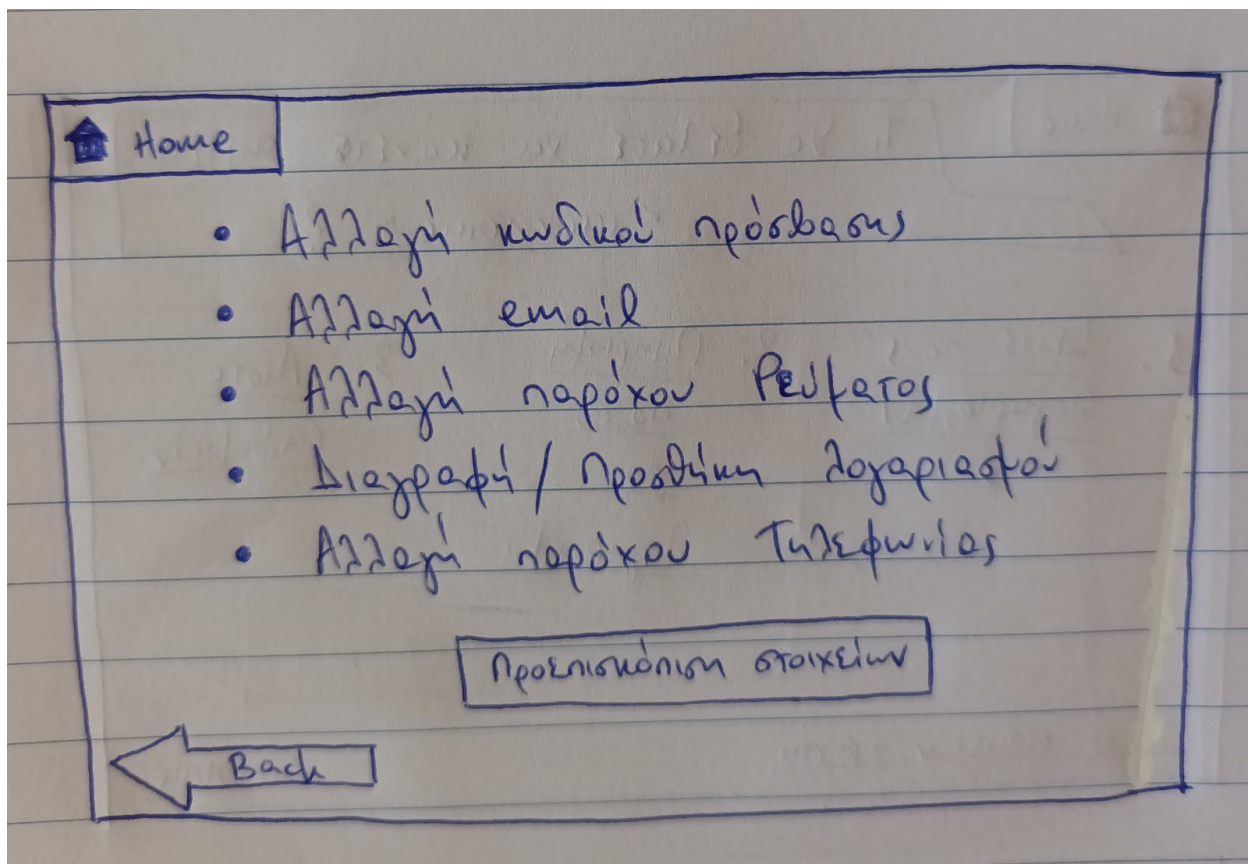 Home
• Αλλαγή κωδικού πρόσβασης
• Αλλαγή email
• Αλλαγή παρόχου Ρεύματος
• Διαγραφή / Προσθήκη λογαριασμού
• Αλλαγή παρόχου Τηλεφωνίας
Προεπισκόπιση στοιχείων
Back